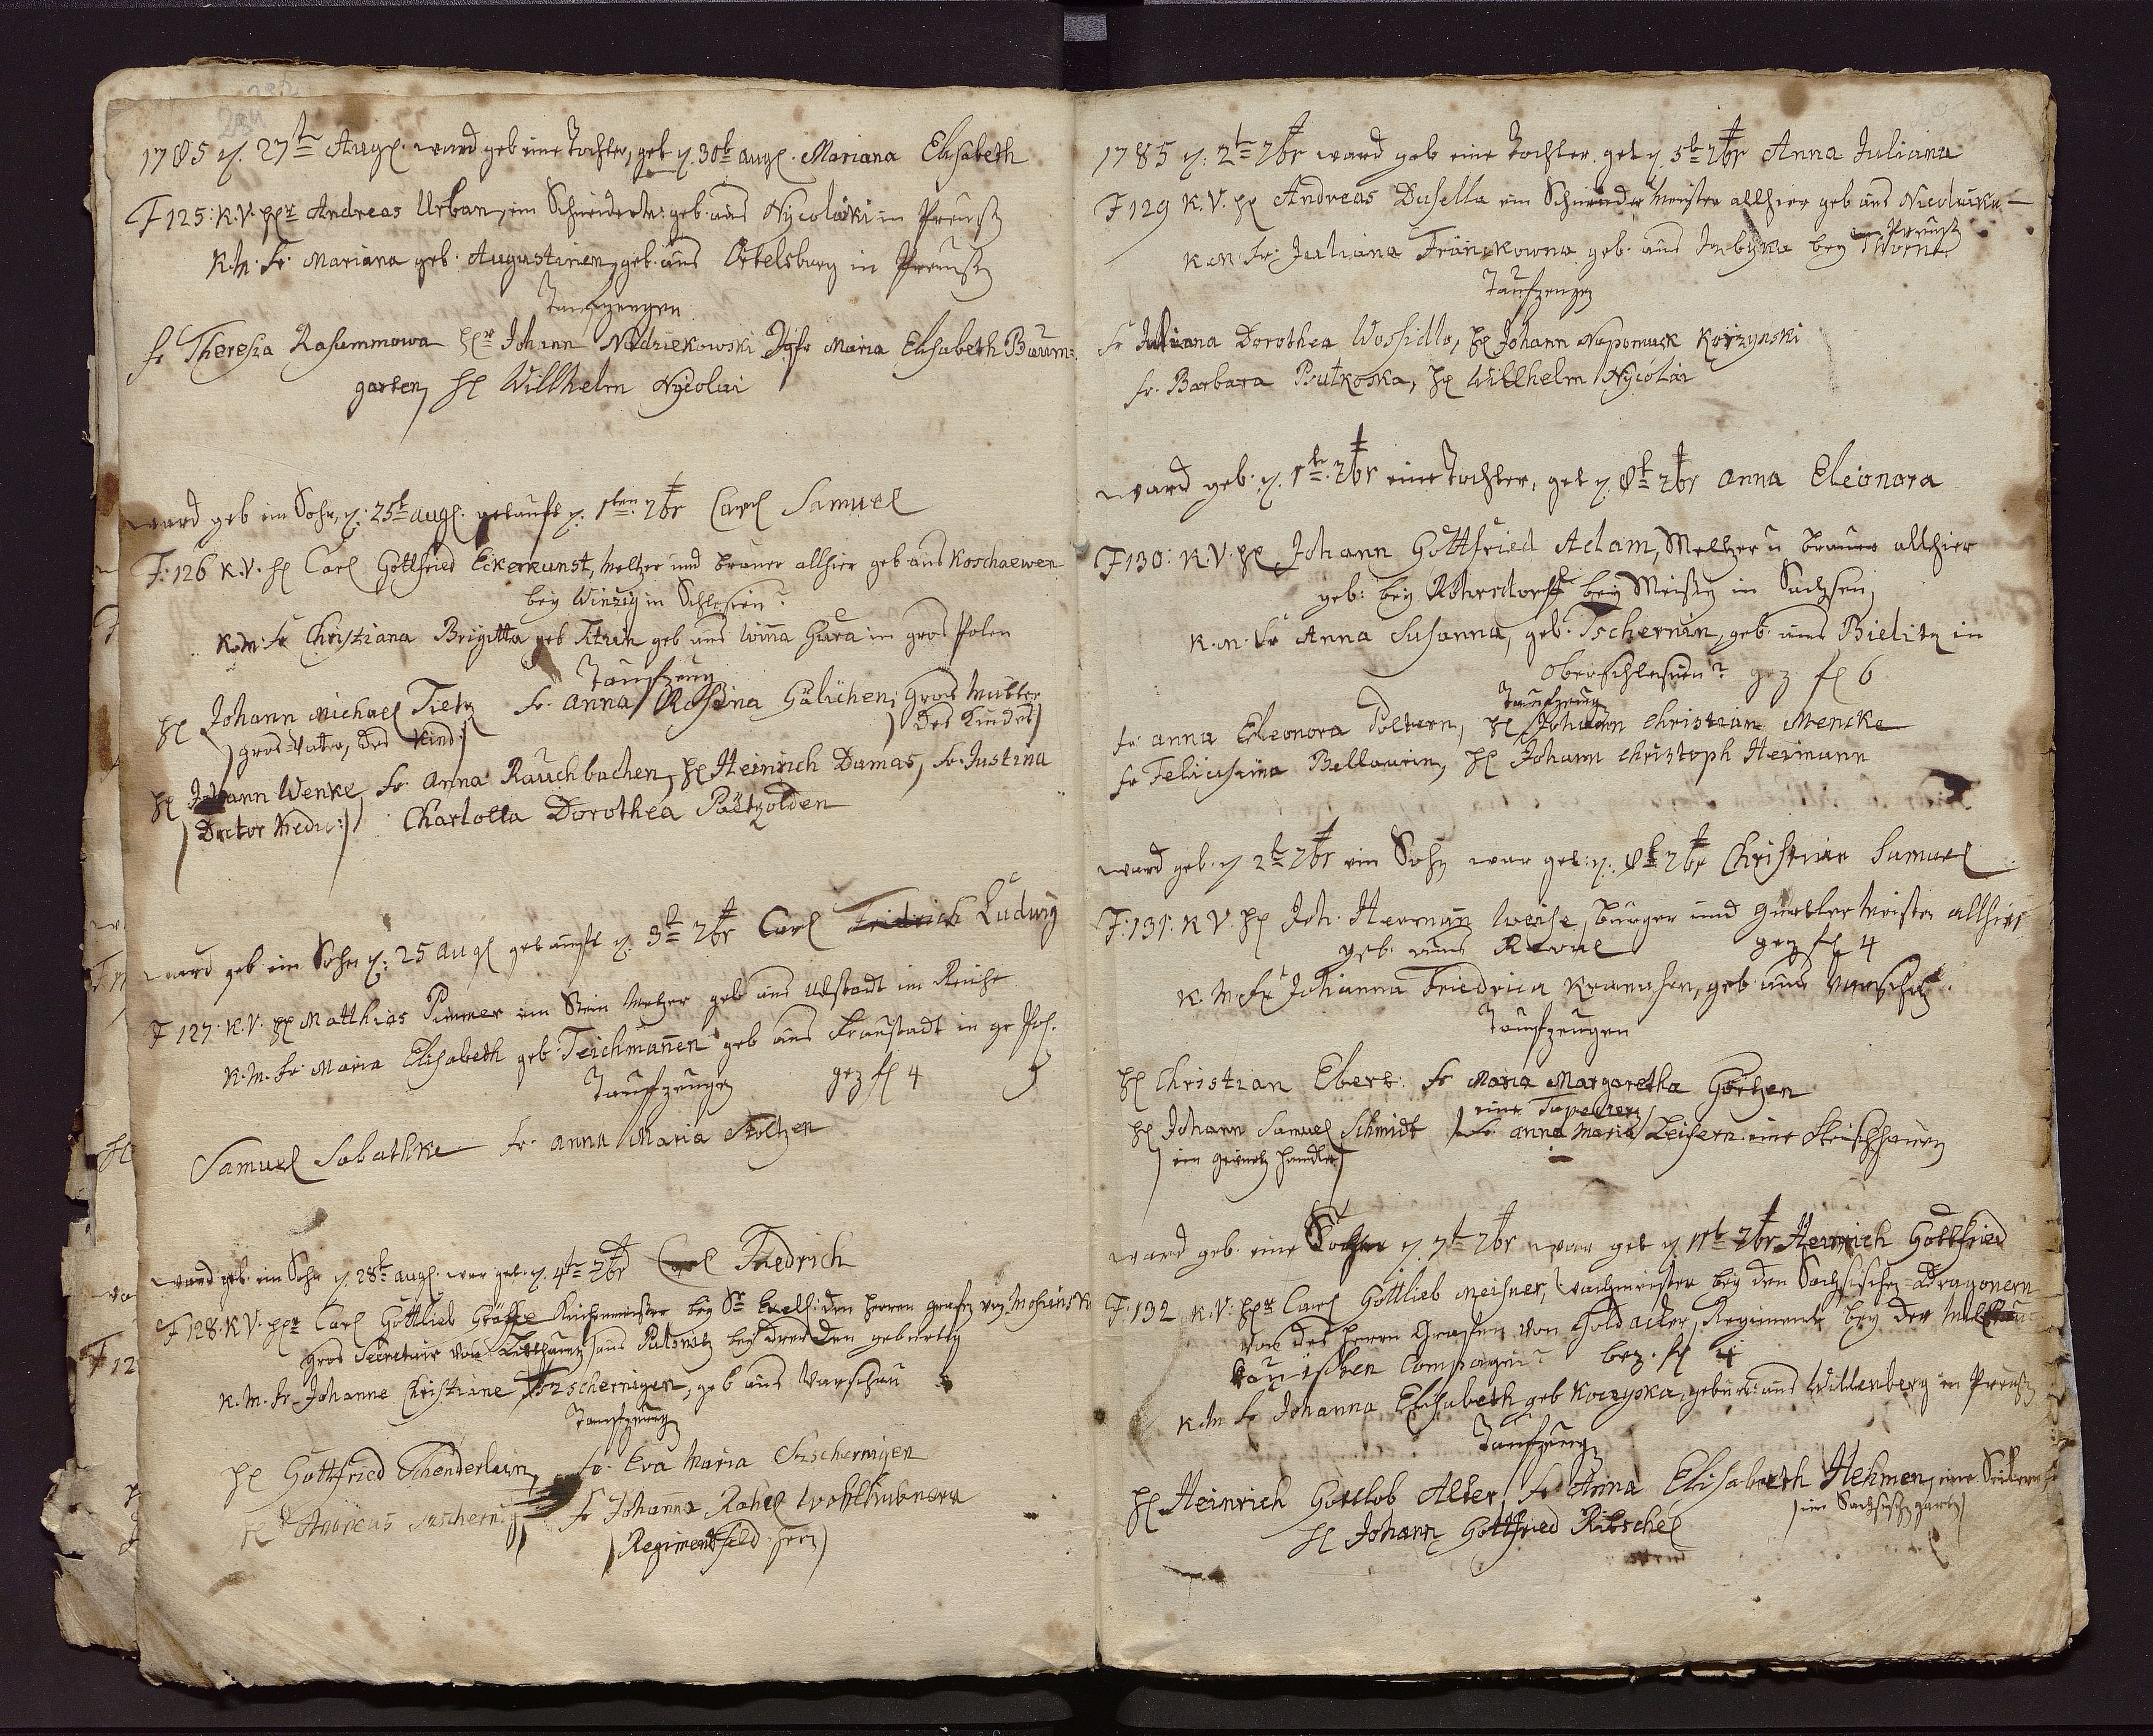 1785 d. 27t Augl. ward geb eine Tochter, get d. 30t augl. Mariana Elisabeth
F 125: K.V. Hr Andreas Urban, ein Schneiderm: geb. aus Nycolaiki in Preuß
K.M. Fr. Mariana geb. Augustinien, geb. aus Ortelsburg in Preußen
Taufzeugen
Fr Theresia Rasummowa Hr Johann Nadziekowski Jgfr Maria Elisabeth Baum=
garten, H Willhelm Nycolai
ward geb ein Sohn, d. 25t augl. getauft d. 1ten 7br Carl Samuel
F: 126 K.V. H Carl Gottfried Eckerkunst, Meltzer und Brauer allhier geb aus Koschaewen
bey Winzig in Schlesien
K.M. Fr Christiana Brigitta geb Titzin geb aus Winna Gura in gros Polen
Taufzeug
H Johann Michael Tietz Fr. Anna Rosina Gälichen, Gros Mutter
gros=Vater, des Kind) des Kindes)
H Johann Wenke, Fr. Anna Rauchbachen, H Heinrich Dumas, Fr. Justina
(Doctor Medic:) Charlotta Dorothea Pätzolden
ward geb ein Sohn d: 25 augl getauft d. 3t 7br Carl Fridrich Ludwig
F 127. K.V. H Matthias Pimmer ein Stein Metzer geb aus Udstadt im Reiche
K.M. Fr. Maria Elisabeth geb. Teichmannen geb aus Fraustadt in gr Pol.
Taufzeugen gez fl 4
Samuel Sabathke Fr. Anna Maria Stoltzen
ward geb. ein Sohn d. 28t augl. war get. d. 4te 7br Carl Fredrich
F 128. K.V. Hr Carl Gottlieb Gräffe Küchenmeister bey Sr Excell: den Herren grafen von
gros Secretair von Litthauen aus Pulsnitz bey Dresden gebürtig
K.M. Fr. Johanne Christiane Tzschernigen, geb aus Warschau
Taufzeug
H Gottfried Schenderlein, Fr. Eva Maria Tzschernigen
H Andreas Fr Johanna Rahel
(Regimentsfeld
1785 d: 2t 7br ward geb eine Tochter. get d 5t 7br Anna Juliana
F 129 K.V. H Andreas Dusella ein Schneider Meister allhier geb aus Nicolaike
in Preuß
K.M. Fr: Juliana Fränckowna geb. aus bey Thorne
Taufzeugen
Fr Juliana Dorothea Wossidlo, H Johann Nepomuck Korzynski
Fr. Barbara Rutkoska, H Willhelm Nycolai
ward geb. d. 1t 7br eine Tochter, get d. 8t 7br Anna Eleonora
F 130: K.V. H Johann Gottfried Adam, Meltzer u Brauer allhier
geb: bey Röhrsdorff bey Meißen in Sachsen
K.M. Fr Anna Susanna, geb. Tschernin, geb. aus Bielitz in
Oberschlesien gez fl 6
Taufzeug
Fr Anna Eleonora Poltern, H Johann Christian Mencke
Fr Bellaurin, H Johann Christoph Hermann
ward geb. d 2t 7br ein Sohn war get: d. 8t 7br Christian Samuel
F: 131: K.V: H Joh. Herman Weise, Bürger und Gürtler Meister allhier
geb. aus Reval gez fl 4
K.M. Fr Johanna Friedrica geb. aus Warschau
Taufzeugen
H Christian Ebert Fr Maria Margaretha Görtzen
eine
H Johann Samuel Schmidt Fr. Anna Maria Leisern eine Fleischhauerin
(ein Gewürtz Händler)
ward geb. eine d 7t 7br war get d 11t 7br Heinrich Gottfried
F: 132 K.V: Hr Carl Gottlieb Meisner, Wachmeister bey den Sächsischen Dragonern
von des Herrn Grafen von Goldacker, Regiment bey der
Compagnie bez. fl 4
K.M Fr Johanna Elisabeth geb Koczyska, gebürt: aus Willenberg in Preuß
Taufzeug
H Heinrich Gottlob Alter, Fr. Anna Elisabeth Hehmen, eine
H Johann Gottfried Ritschel (im Sächsisch garten)